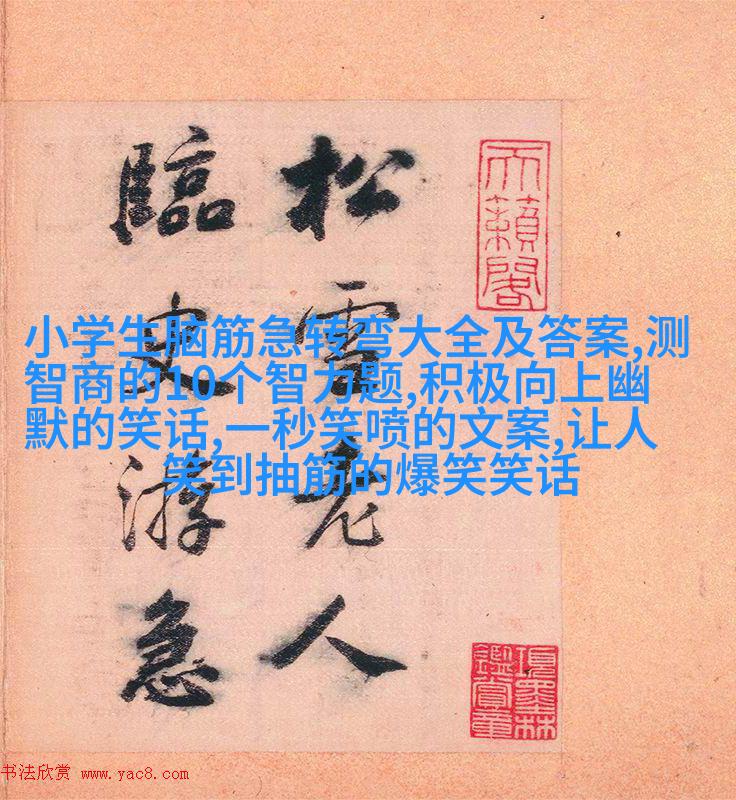 松雪老人
臨史游急
天籟閣
項墨林
鑑賞章
小学生脑筋急转弯大全及答案,测
智商的10个智力题,积极向上幽
默的笑话,一秒笑喷的文案,让人
笑到抽筋的爆笑笑话
书法欣赏 www.yac8.com